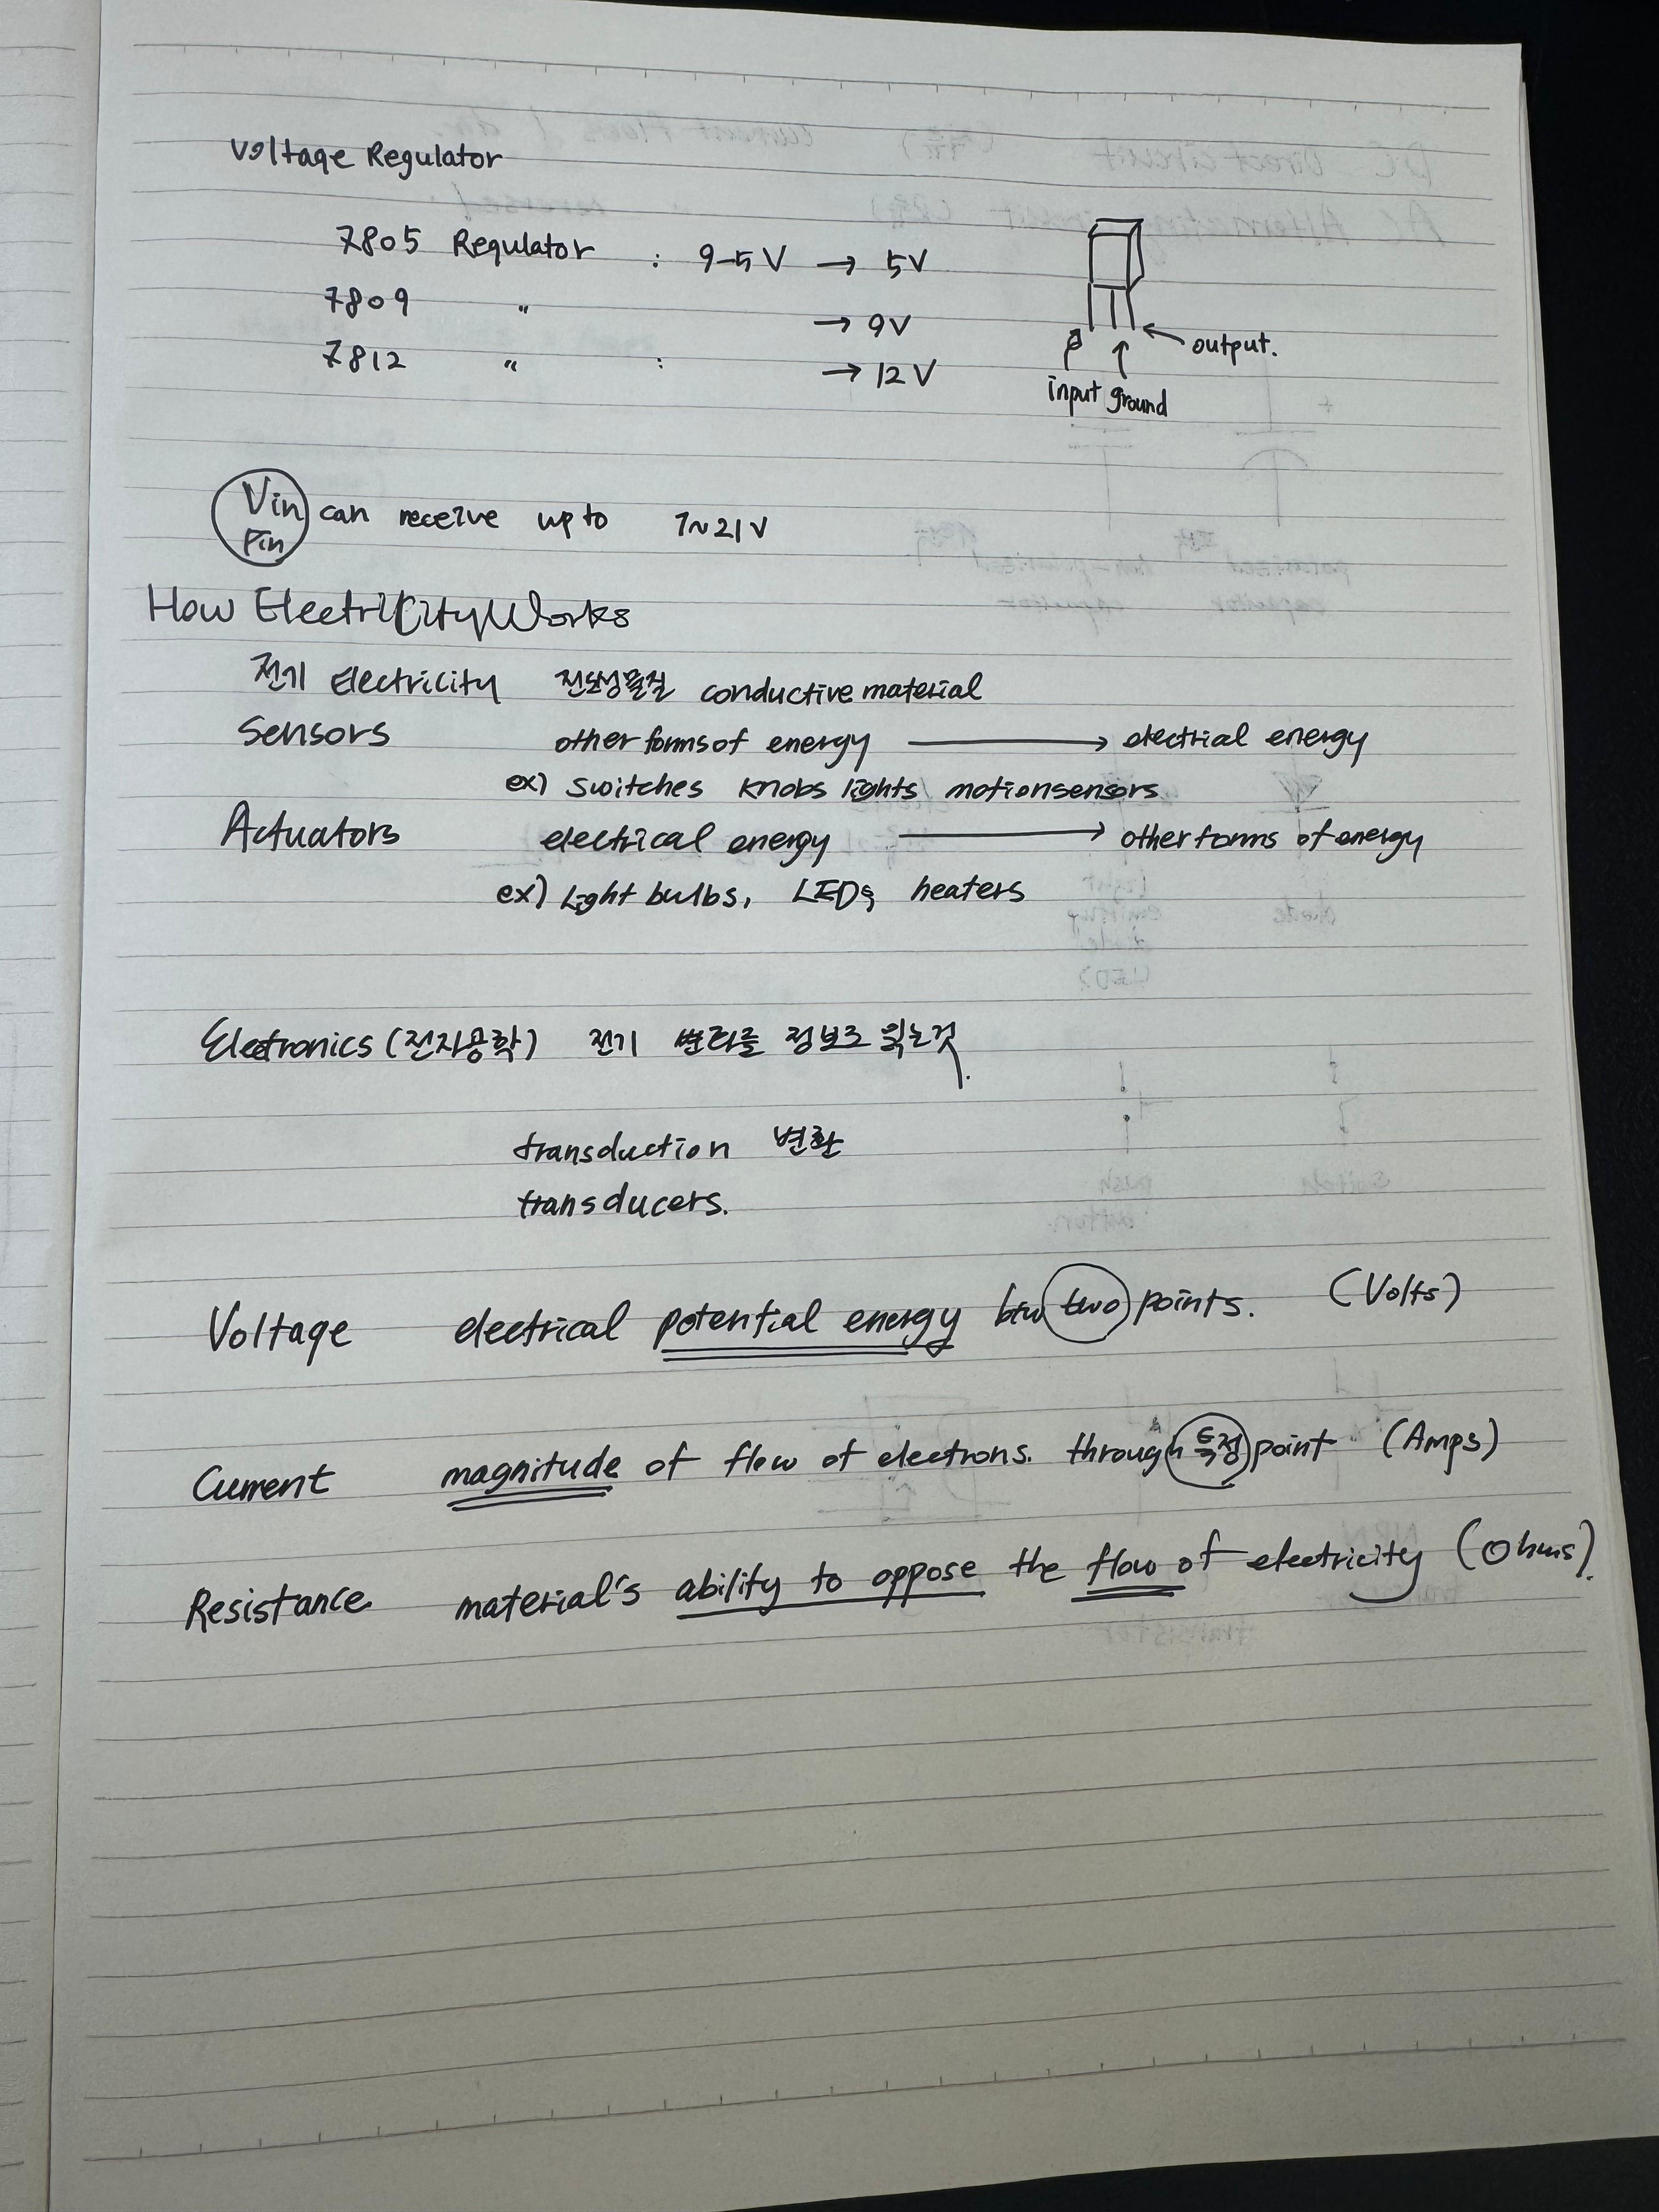 Voltage Regulator
7805 Regulator : 9-5V → 5V
7809 " → 9V
7812 " : → 12V
output.
input ground
Vin Pin can receive up to 7~21V
How Electricity Works
전기 Electricity 전도성물질 conductive material
Sensors other forms of energy → electrial energy
ex) switches knobs lights motionsensors
Actuators electrical energy → other forms of energy
ex) Light bulbs, LEDs heaters
Electronics (전자공학) 전기 변화를 정보로 읽는것.
transduction 변환
transducers.
Voltage electrical potential energy btw two points. (Volts)
Current magnitude of flow of electrons. through 특정 point (Amps)
Resistance material's ability to oppose the flow of electricity (Ohms).